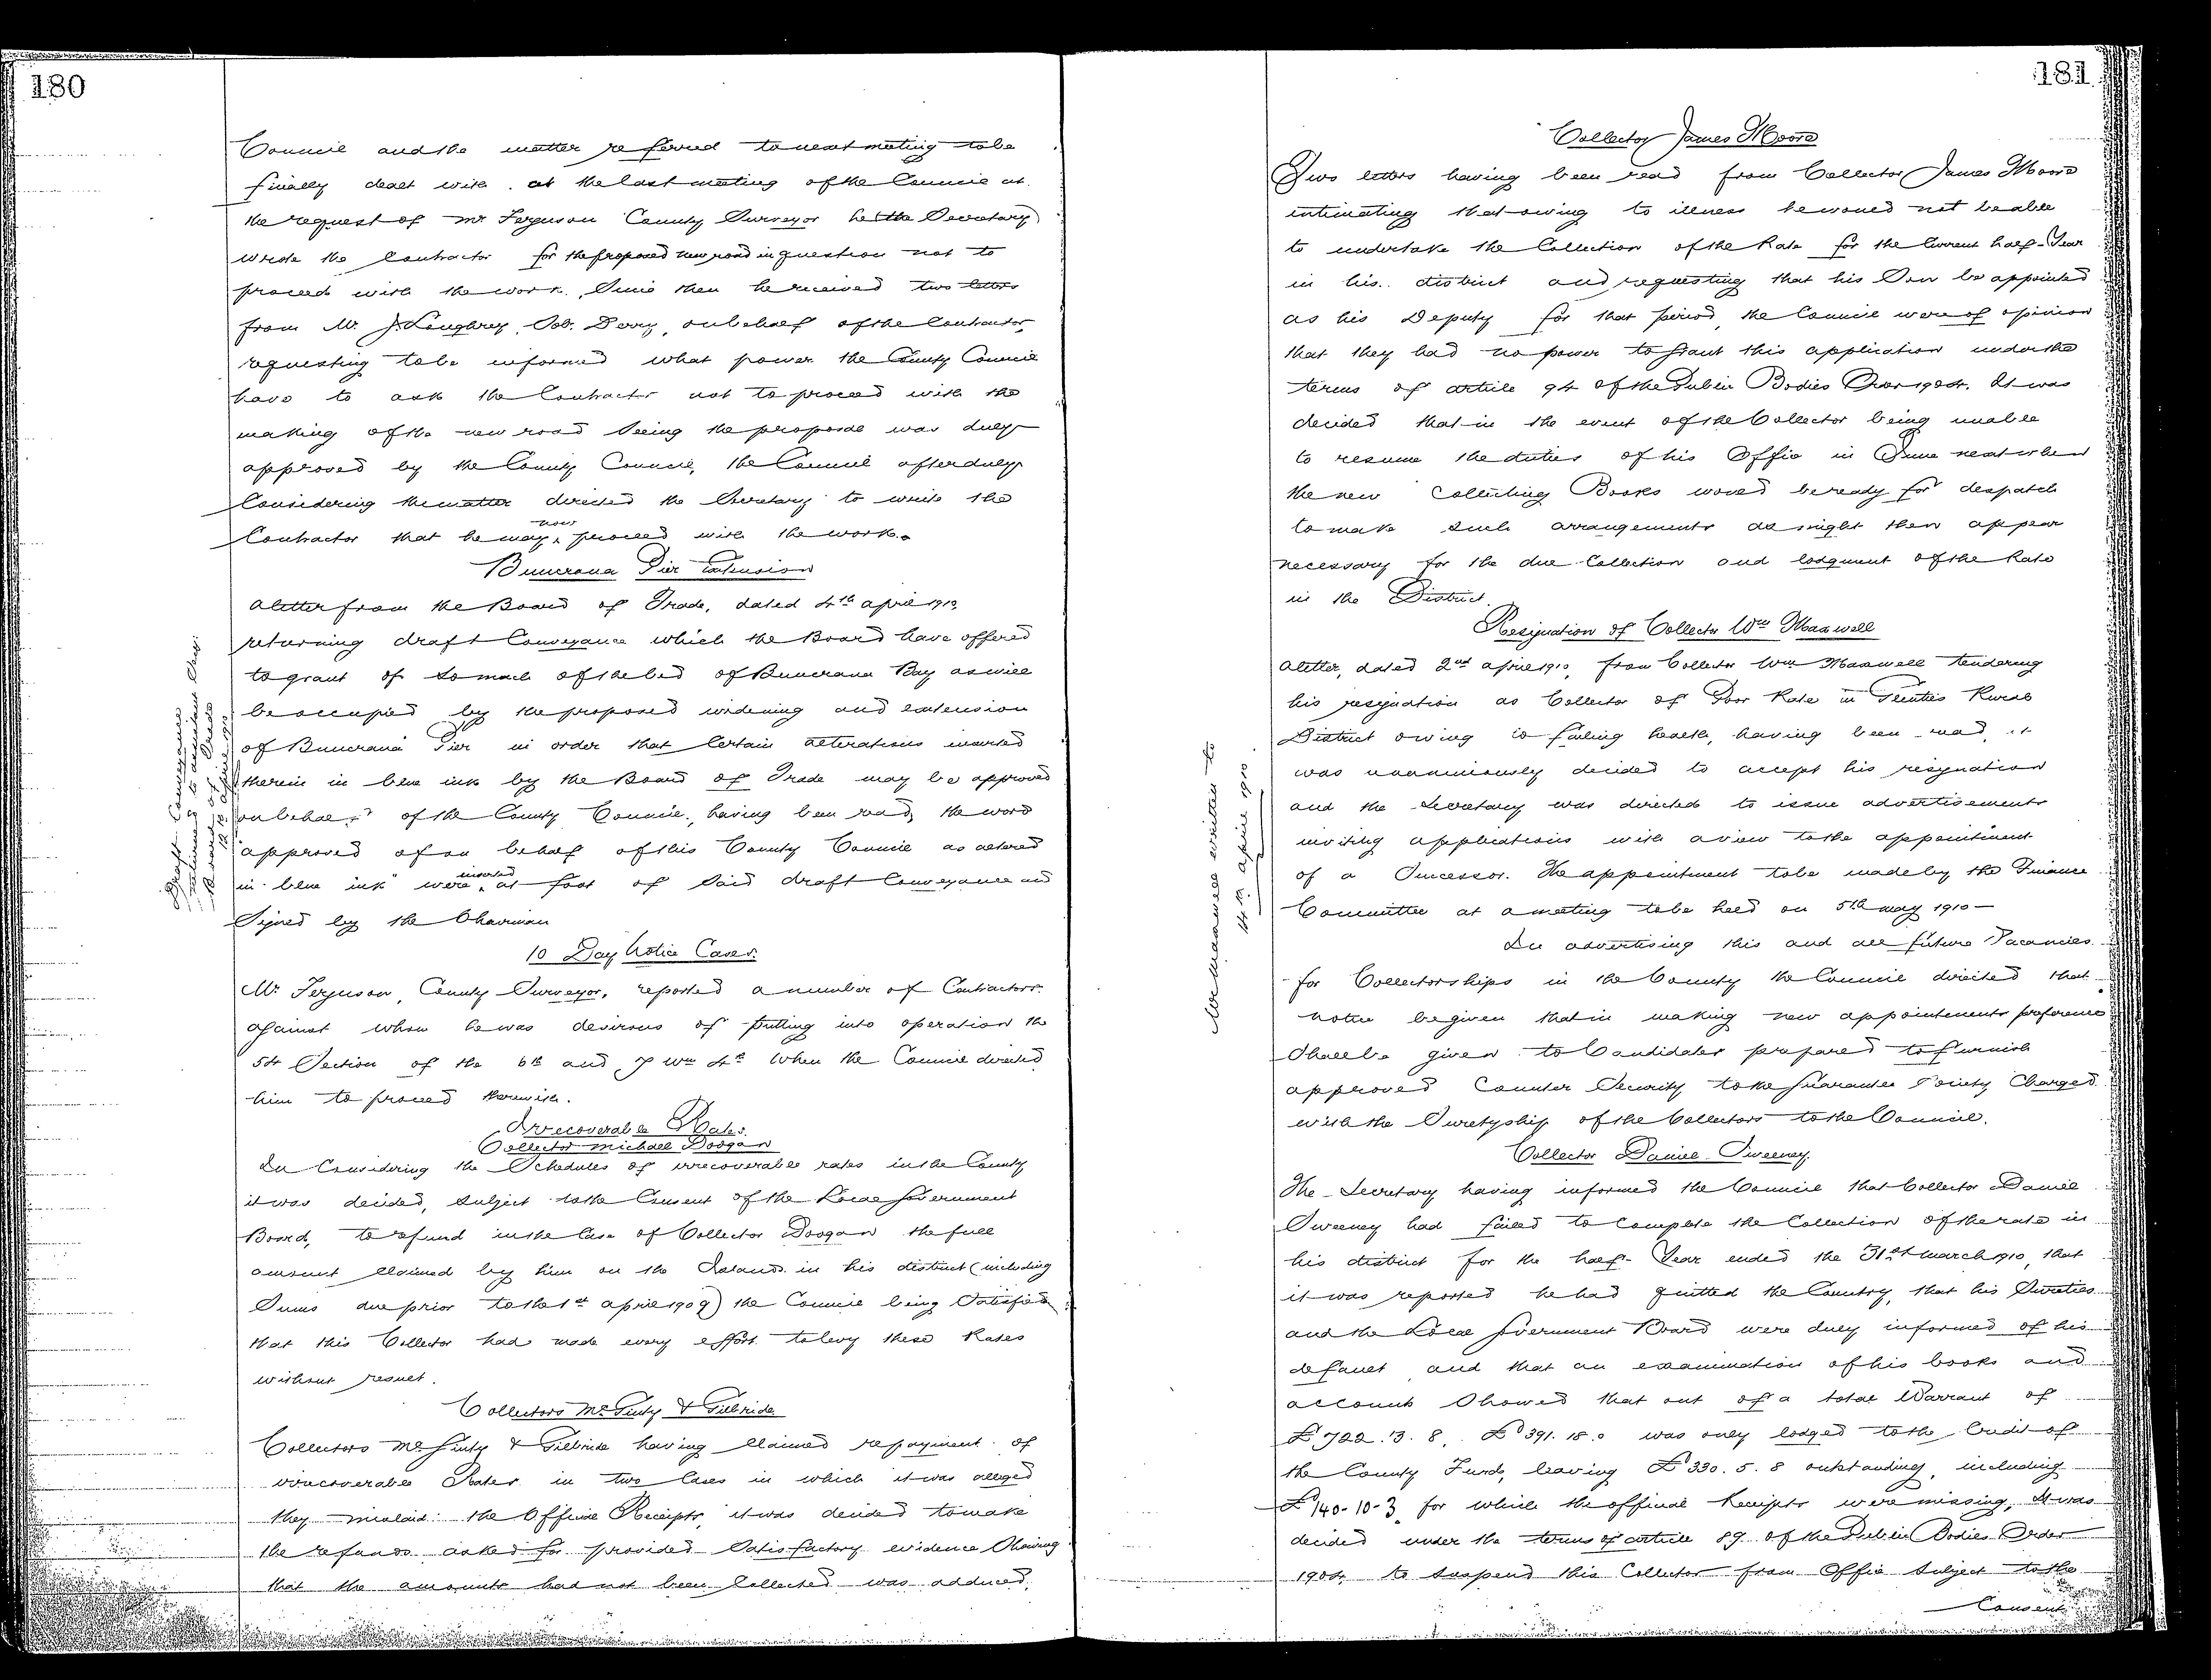 180
Council and the matter referred to next meeting to be
finally dealt with. at the last meeting of the Council at
the request of Mr Ferguson County Surveyor he (the Secretary)
wrote the Contractor for the proposed new road in question not to
proceed with the work. Since then he received two letters
from Mr. J. Loughrey, Sol. Derry, on behalf of the Contractor,
requesting to be informed what power the County Council
have to ask the Contractor not to proceed with the
making of the new road seeing the proposal was duly
approved by the County Council, the Council after duly
Considering the matter directed the Secretary to write the
Contractor that he may now proceed with the work.
Buncrana Pier Extension
A letter from the Board of Trade, dated 4th April 1910,
returning draft Conveyance which the Board have offered
to grant of so much of the bed of Buncrana Bay as will
be occupied by the proposed widening and extension
of Buncrana Pier in order that Certain alterations inserted
therein in blue ink by the Board of Trade may be approved
on behalf of the County Council, having been read, the word
"approved of on behalf of this County Council as altered
in blue ink" were inserted at foot of said draft Conveyance and
Signed by the Chairman
Draft Conveyance
10 Day Notice Cases.
Mr. Ferguson, County Surveyor, reported a number of Contractors
against whom he was desirous of putting into operation the
54 Section of the 6th and 7 Wm 4th When the Council directed
him to proceed therewith.
Irrecoverable Rates.
Collector Michael Doogan
In Considering the Schedules of irrecoverable rates in the County
it was decided, subject to the Consent of the Local Government
Board, to refund in the Case of Collector Doogan the full
amount Claimed by him on the Islands in his district (including
Sums due prior to the 1st April 1909) the Council being Satisfied
that this Collector had made every effort to levy these Rates
without result.
Collectors McGinty & Gilbride
Collectors McGinty & Gilbride having Claimed repayment of
irrecoverable Rates in two Cases in which it was alleged
they mislaid the Official Receipts, it was decided to make
the refunds asked for provided Satisfactory evidence Showing
that the amounts had not been Collected was adduced.
181
Collector James Moore
Two letters having been read from Collector James Moore
intimating that owing to illness he would not be able
to undertake the Collection of the Rate for the Current half-Year
in his district and requesting that his Son be appointed
as his Deputy for that period, the Council were of opinion
that they had no power to grant this application under the
terms of article 94 of the Public Bodies Order 1904. It was
decided that in the event of the Collector being unable
to resume the duties of his Office in June next when
the new Collecting Books would be ready for despatch
to make such arrangements as might then appear
necessary for the due Collection and lodgment of the Rate
in the District.
Resignation of Collector Wm Maxwell
A letter, dated 2nd April 1910, from Collector Wm Maxwell tendering
his resignation as Collector of Poor Rate in Glenties Rural
District owing to failing health, having been read, it
was unanimously decided to accept his resignation
and the Secretary was directed to issue advertisements
inviting applications with a view to the appointment
of a Successor. The appointment to be made by the Finance
Committee at a meeting to be held on 5th May 1910 —
Mr Maxwell written to
14th April 1910
In advertising this and all future Vacancies
for Collectorships in the County the Council directed that
notice be given that in making new appointments preference
Shall be given to Candidates prepared to furnish
approved Counter Security to the Guarantee Society Charged
with the Suretyship of the Collectors to the Council.
Collector Daniel Sweeney.
The Secretary having informed the Council that Collector Daniel
Sweeney had failed to Complete the Collection of the rate in
his district for the half-Year ended the 31st March 1910, that
it was reported he had quitted the Country, that his Sureties
and the Local Government Board were duly informed of his
default and that an examination of his books and
accounts Showed that out of a total Warrant of
£722.3.8, £391.18.0 was only lodged to the Credit of
the County Funds, leaving £330.5.8 outstanding, including
£140-10-3 for which the official Receipts were missing, It was
decided under the terms of article 89 of the Public Bodies Order
1904 to suspend this Collector from Office Subject to the
Consent